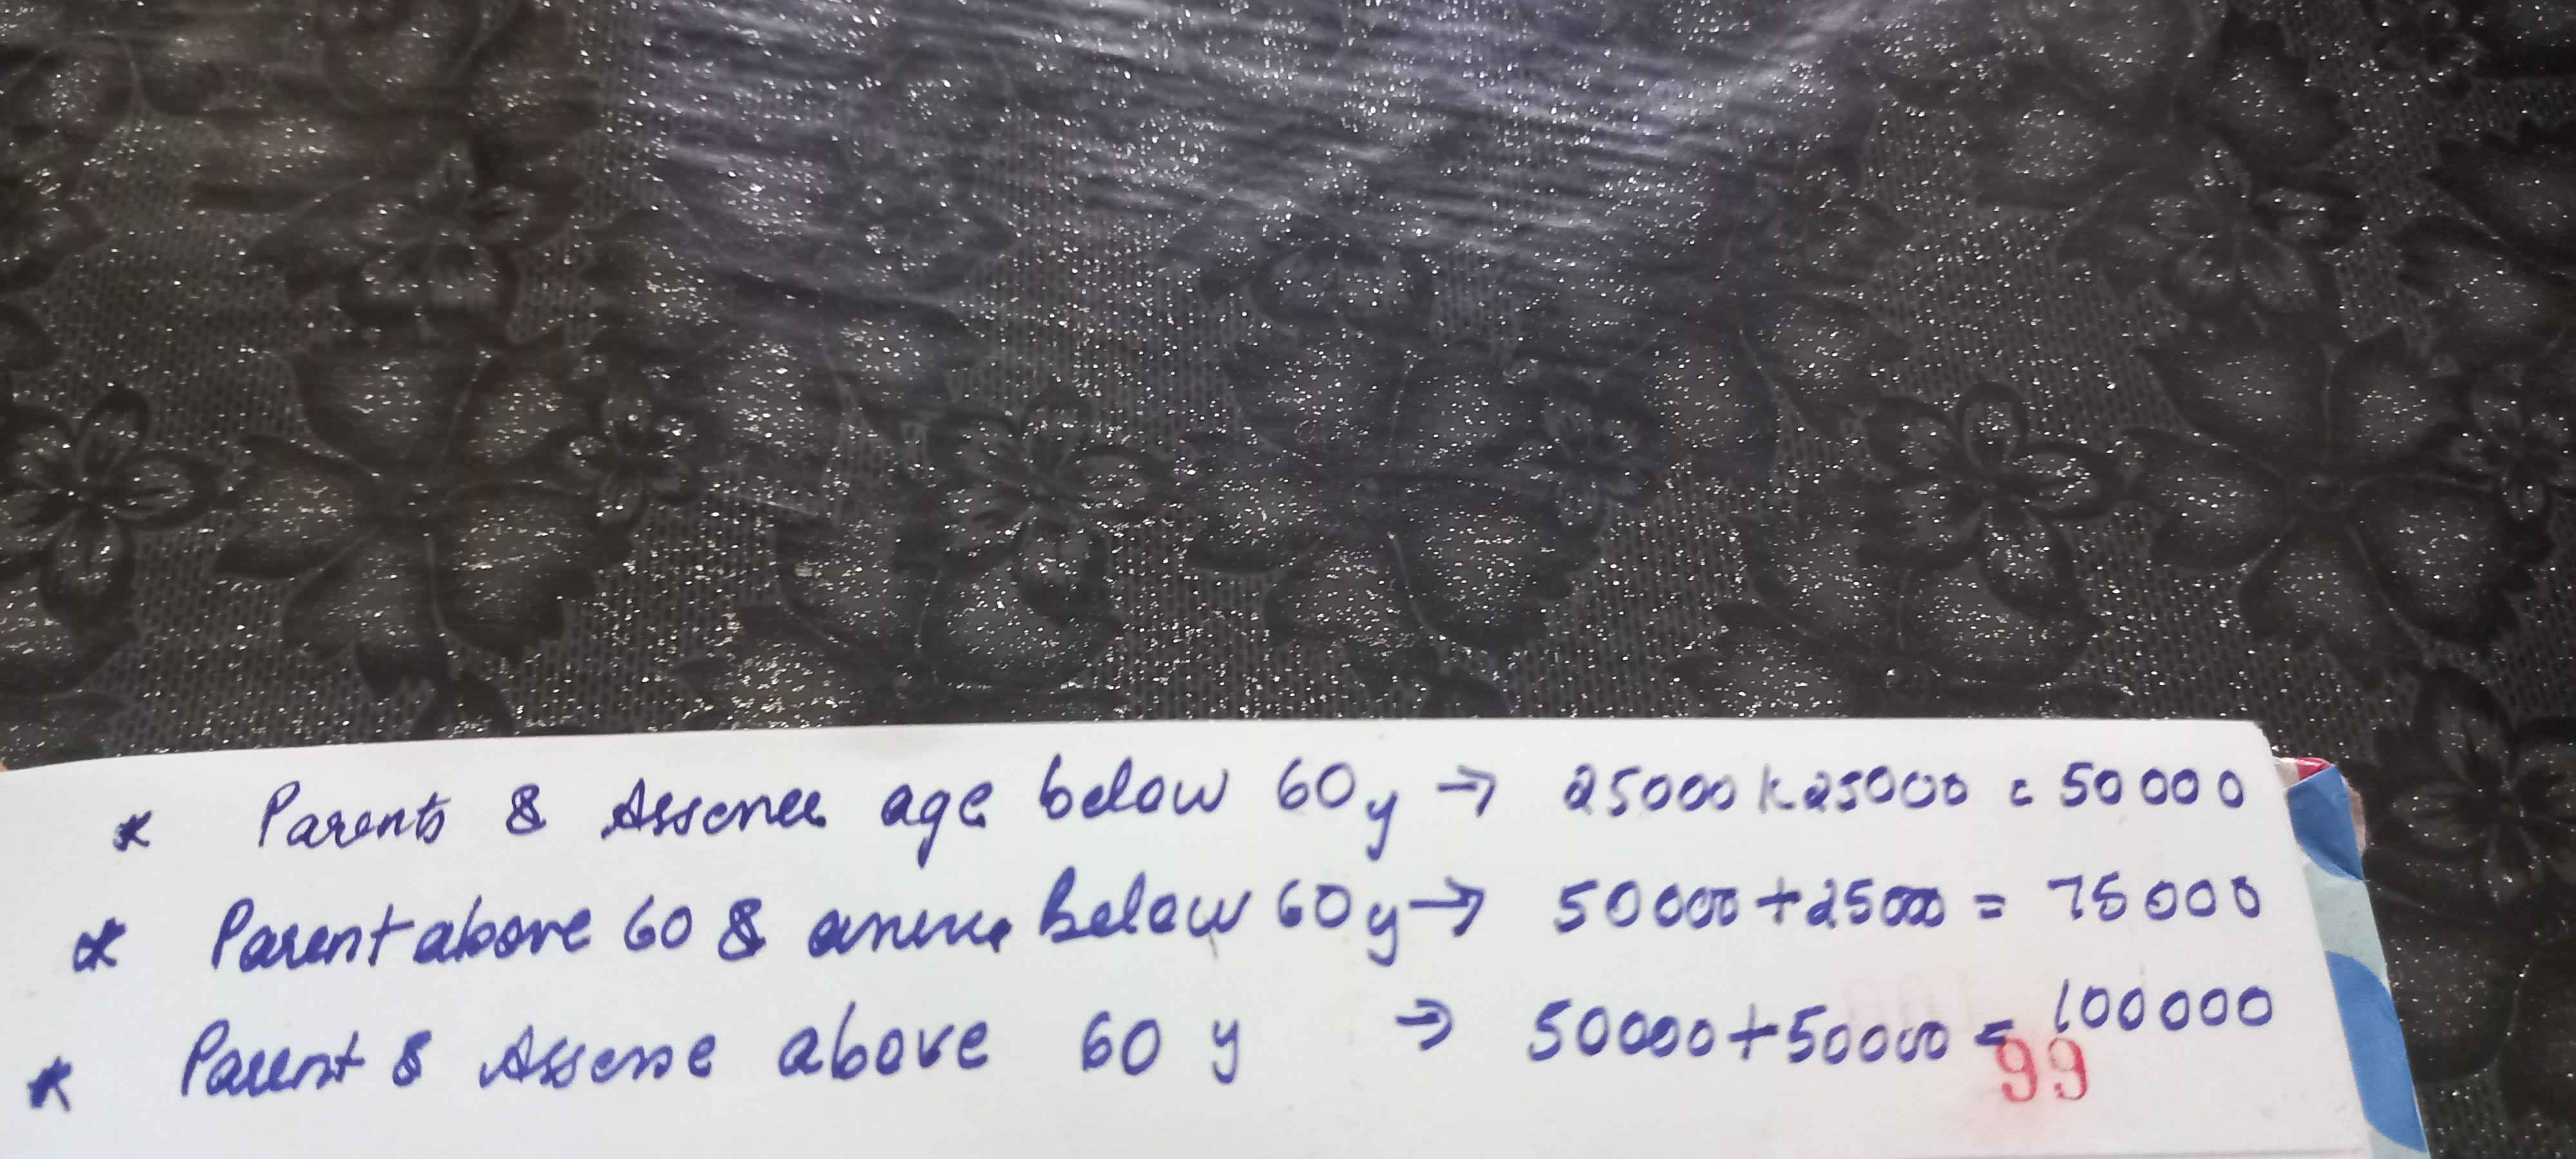 * Parents & Assessee age below 60y → 25000+25000 = 50000
* Parent above 60 & assessee Below 60y → 50000+25000 = 75000
* Parent & Assesse above 60 y → 50000+50000 = 100000
99